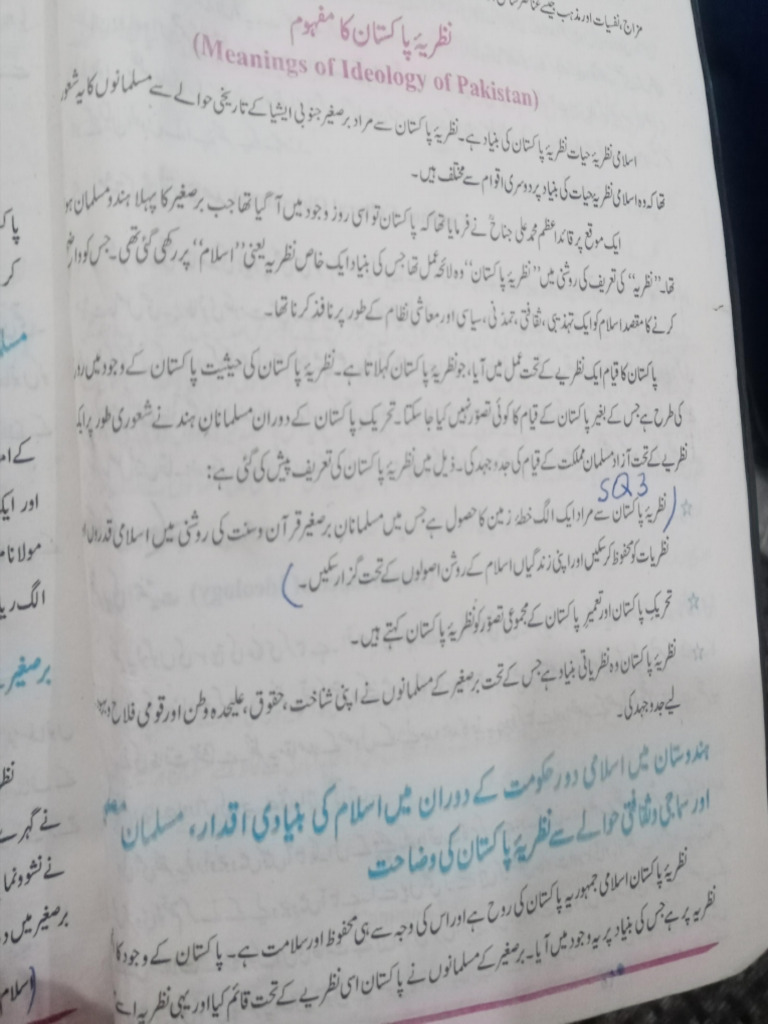 مزاج، نفسیات اور مذہب جیسے
نظریۂ پاکستان کا مفہوم
(Meanings of Ideology of Pakistan)
اسلامی نظریۂ حیات نظریۂ پاکستان کی بنیاد ہے۔ نظریۂ پاکستان سے مراد برصغیر جنوبی ایشیا کے تاریخی حوالے سے مسلمانوں کا یہ شعور
تھا کہ وہ اسلامی نظریۂ حیات کی بنیاد پر دوسری اقوام سے مختلف ہیں۔
ایک موقع پر قائد اعظم محمد علی جناحؒ نے فرمایا تھا کہ پاکستان تو اسی روز وجود میں آ گیا تھا جب برصغیر کا پہلا ہندو مسلمان ہو
تھا۔ ”نظریہ“ کی تعریف کی روشنی میں ”نظریۂ پاکستان“ وہ لائحہ عمل تھا جس کی بنیاد ایک خاص نظریہ یعنی ”اسلام“ پر رکھی گئی تھی۔ جس کو
کرنے کا مقصد اسلام کو ایک تہذیبی، ثقافتی، تمدنی، سیاسی اور معاشی نظام کے طور پر نافذ کرنا تھا۔
پاکستان کا قیام ایک نظریے کے تحت عمل میں آیا، جو نظریۂ پاکستان کہلاتا ہے۔ نظریۂ پاکستان کی حیثیت پاکستان کے وجود میں
کی طرح ہے جس کے بغیر پاکستان کے قیام کا کوئی تصور نہیں کیا جا سکتا۔ تحریک پاکستان کے دوران مسلمانانِ ہند نے شعوری طور پر
نظریے کے تحت آزاد مسلمان مملکت کے قیام کی جدوجہد کی۔ ذیل میں نظریۂ پاکستان کی تعریف پیش کی گئی ہے:
SQ3
☆ (نظریۂ پاکستان سے مراد ایک الگ خطۂ زمین کا حصول ہے جس میں مسلمانانِ برصغیر قرآن و سنت کی روشنی میں اسلامی قدروں
نظریات کو محفوظ کر سکیں اور اپنی زندگیاں اسلام کے روشن اصولوں کے تحت گزار سکیں۔)
☆ تحریک پاکستان اور تعمیرِ پاکستان کے مجموعی تصور کو نظریۂ پاکستان کہتے ہیں۔
☆ نظریۂ پاکستان وہ نظریاتی بنیاد ہے جس کے تحت برصغیر کے مسلمانوں نے اپنی شناخت، حقوق، علیحدہ وطن اور قومی فلاح
لیے جدوجہد کی۔
ہندوستان میں اسلامی دور حکومت کے دوران میں اسلام کی بنیادی اقدار، مسلمان
اور سماجی و ثقافتی حوالے سے نظریۂ پاکستان کی وضاحت
نظریۂ پاکستان اسلامی جمہوریہ پاکستان کی روح ہے اور اس کی وجہ سے ہی محفوظ اور سلامت ہے۔ پاکستان کے وجود کا
نظریہ پر ہے جس کی بنیاد پر یہ وجود میں آیا۔ برصغیر کے مسلمانوں نے پاکستان اسی نظریے کے تحت قائم کیا اور یہی نظریہ
کے
اور ایک
مولانا
الگ
برصغیر
نے گہرے
نے نشوونما
برصغیر میں
(اسلام